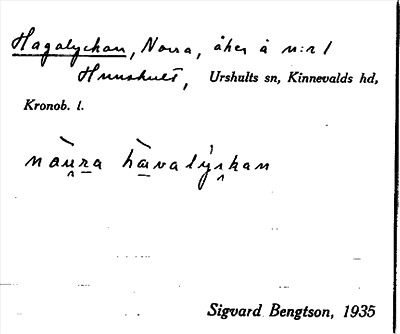 Hagalyckan, Norra, åker å n:r 1
Hunshult, Urshults sn, Kinnevalds hd,
Kronob. l.
nàu̯ra hàvalỳkan
Sigvard Bengtson, 1935